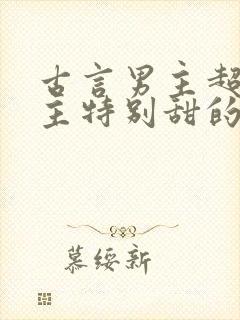 古言男主超
主特别甜的
慕绥新